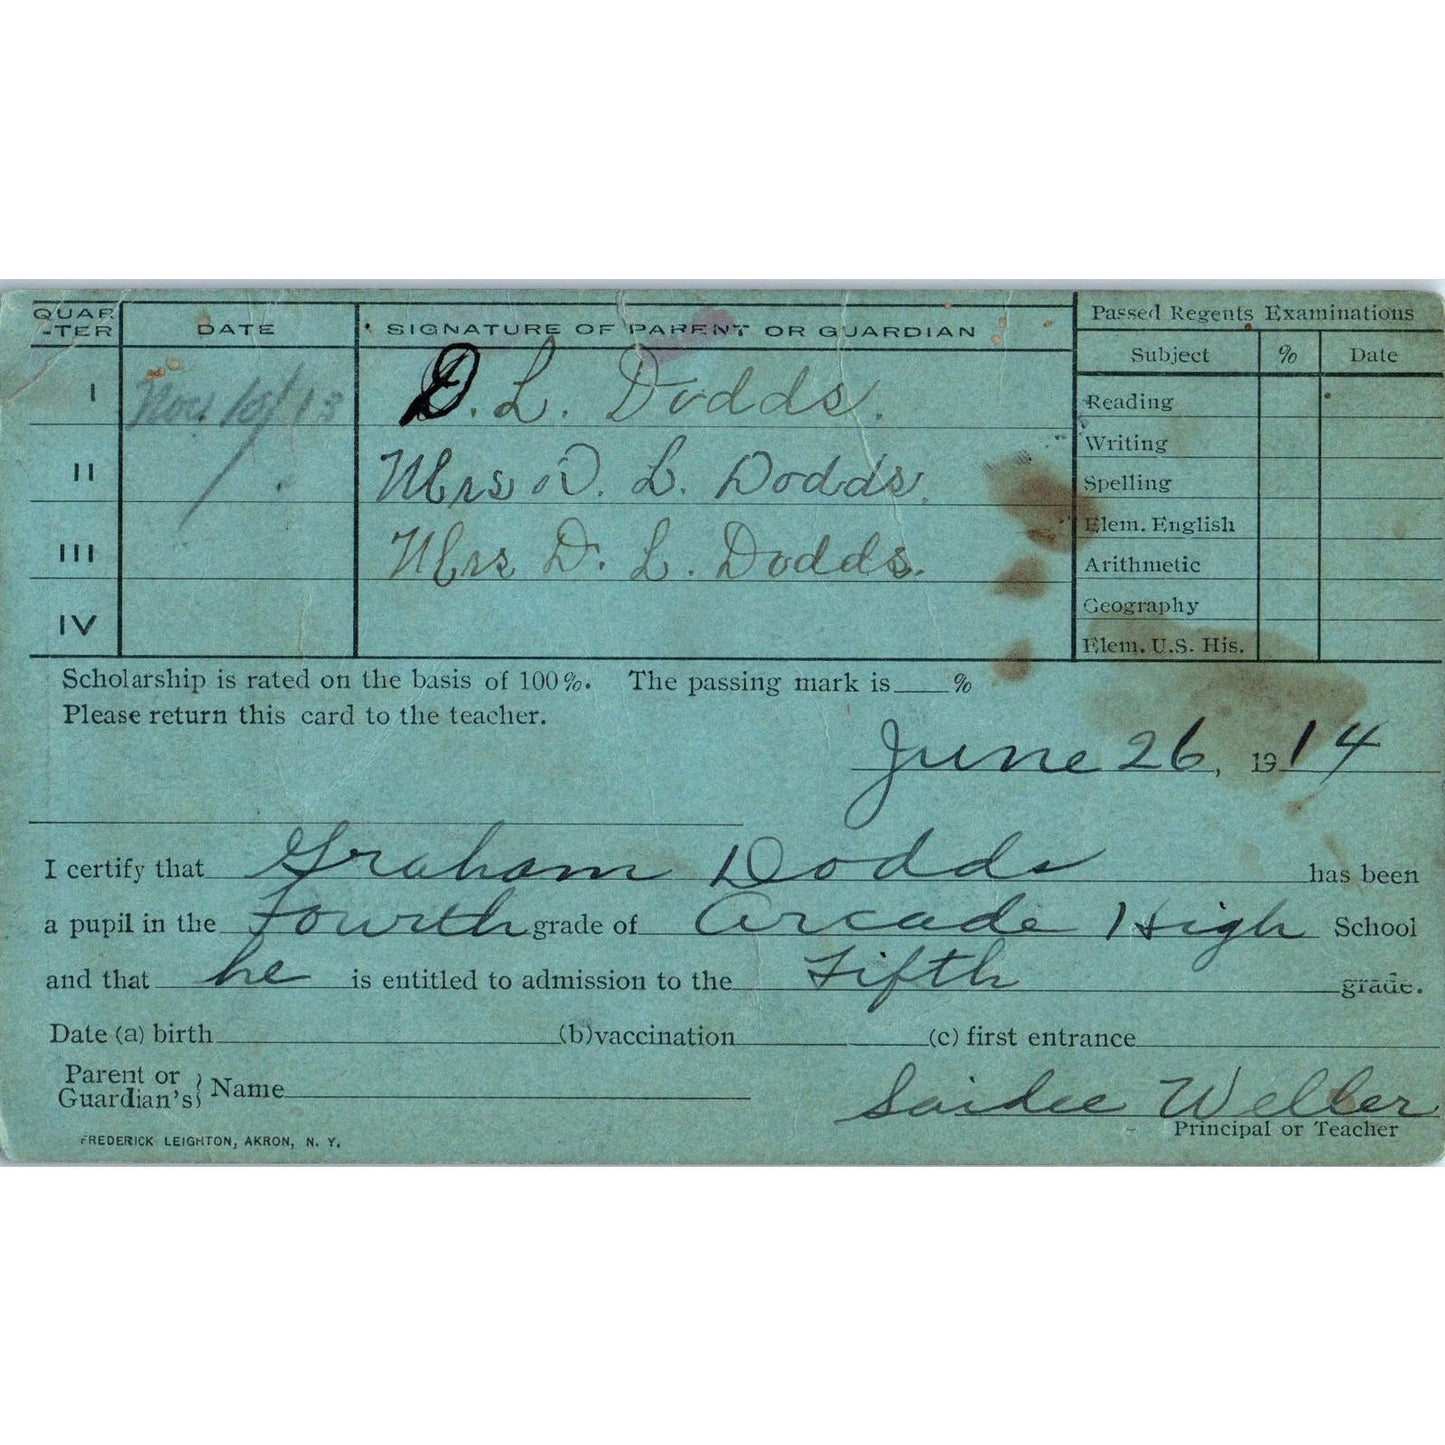 QUAR-TER DATE SIGNATURE OF PARENT OR GUARDIAN
I Nov. 10/13 D. L. Dodds.
II Mrs D. L. Dodds.
III Mrs D. L. Dodds.
IV
Passed Regents Examinations
Subject % Date
Reading
Writing
Spelling
Elem. English
Arithmetic
Geography
Elem. U.S. His.
Scholarship is rated on the basis of 100%. The passing mark is %
Please return this card to the teacher.
June 26, 1914
I certify that Graham Dodds has been
a pupil in the Fourth grade of Arcade High School
and that he is entitled to admission to the Fifth grade.
Date (a) birth (b) vaccination (c) first entrance
Parent or Guardian's} Name
Saidee Weller
Principal or Teacher
FREDERICK LEIGHTON, AKRON, N. Y.